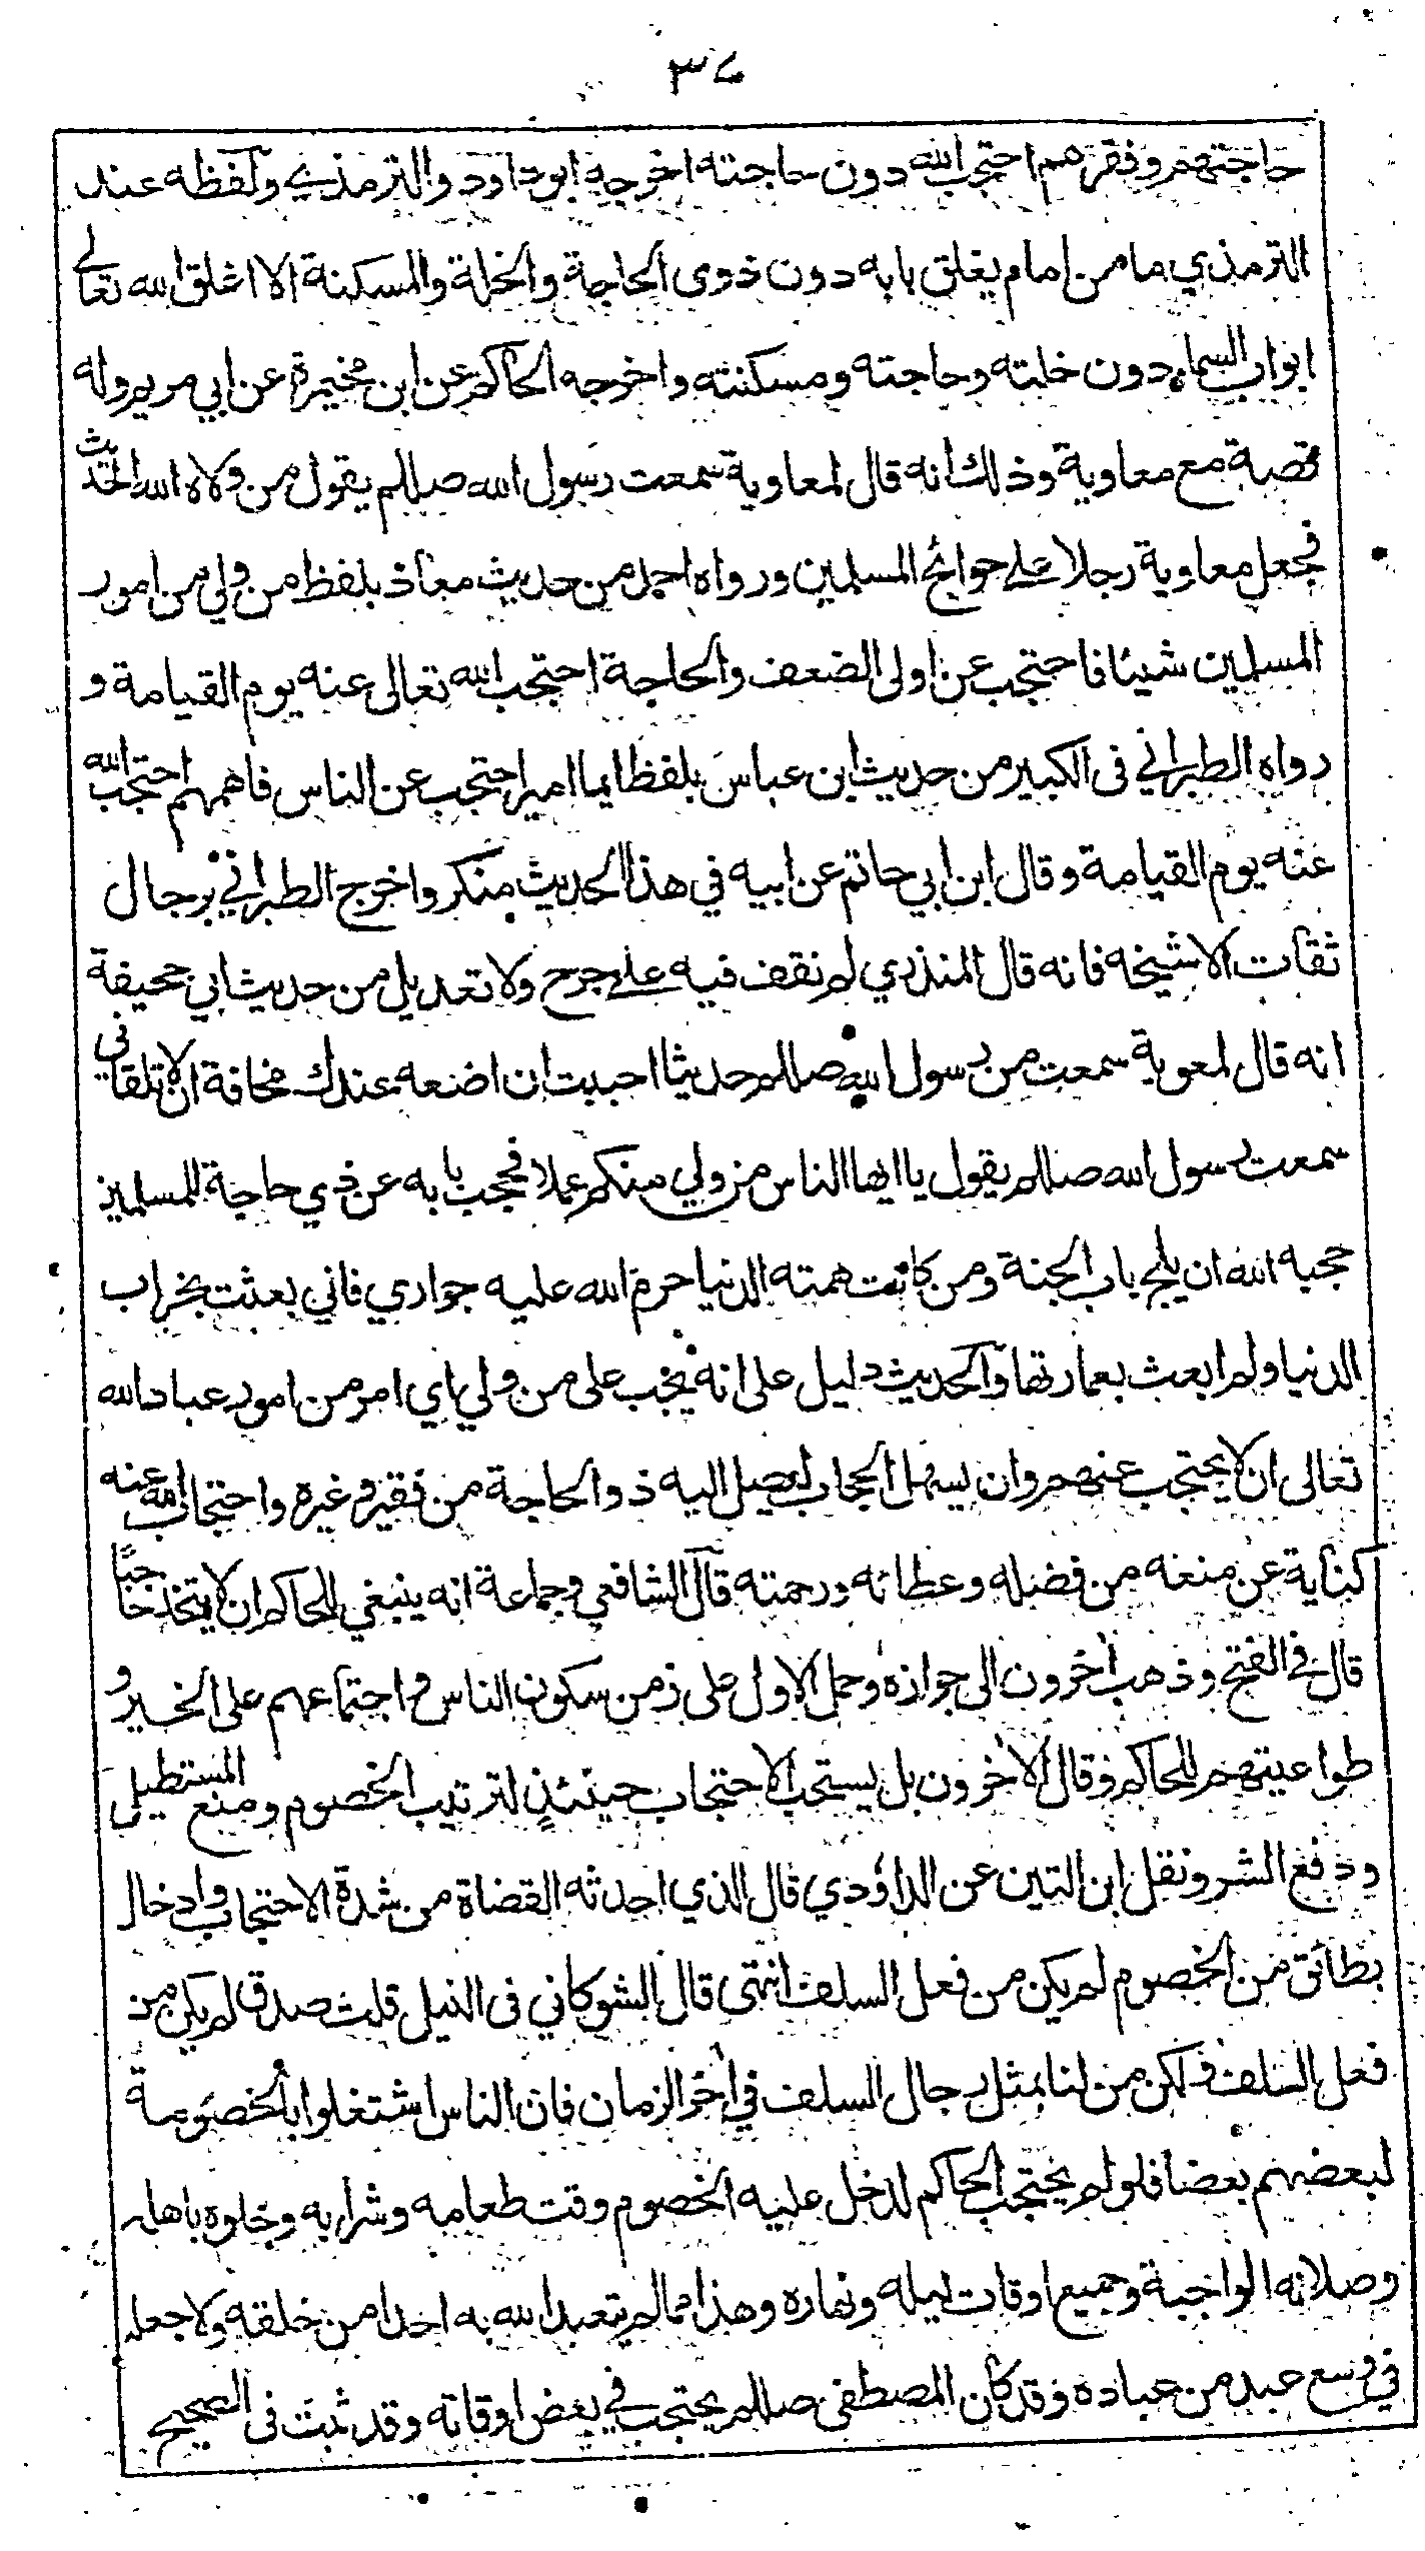 ٣٧
حاجتهم وفقرهم احتجب الله دون حاجته اخرجه ابو داود والترمذي ولفظه عند
الترمذي ما من امام يغلق بابه دون ذوى الحاجة والخلة والمسكنة الا اغلق الله تعالى
ابواب السماء دون خلته وحاجته ومسكنته واخرجه الحاكم عن ابن مخيمرة عن ابي مريم وله
قصة مع معاوية وذلك انه قال لمعاوية سمعت رسول الله صللم يقول من ولاه الله الحديث
فجعل معاوية رجلا على حوائج المسلمين ورواه احمد من حديث معاذ بلفظ من ولي من امور
المسلمين شيئا فاحتجب عن اولى الضعف والحاجة احتجب الله تعالى عنه يوم القيامة و
رواه الطبراني فى الكبير من حديث ابن عباس بلفظ ايما امير احتجب عن الناس فاهمهم احتجب الله
عنه يوم القيامة وقال ابن ابي حاتم عن ابيه في هذا الحديث منكر واخرج الطبراني برجال
ثقات الا شيخه فانه قال المنذري لم نقف فيه على جرح ولا تعديل من حديث ابي جحيفة
انه قال لمعوية سمعت من رسول الله صللم حديثا احببت ان اضعه عندك مخافة ان لا تلقاني
سمعت رسول الله صللم يقول يا ايها الناس من ولي منكم عملا فحجب بابه عن ذي حاجة للمسلمين
حجبه الله ان يلج باب الجنة ومن كانت همته الدنيا حرم الله عليه جواري فاني بعثت بخراب
الدنيا ولم ابعث بعمارتها والحديث دليل على انه يجب على من ولي باي امر من امور عباد الله
تعالى ان لا يحتجب عنهم وان يسهل الحجاب ليصل اليه ذو الحاجة من فقير وغيره واحتجاب الله عنه
كناية عن منعه من فضله وعطائه ورحمته قال الشافعي وجماعة انه ينبغي للحاكم ان لا يتخذ حاجبًا
قال في الفتح وذهب آخرون الى جوازه وحمل الاول على زمن سكون الناس واجتماعهم على الخير و
طواعيتهم للحاكم وقال الآخرون بل يستحب الاحتجاب حينئذٍ لترتيب الخصوم ومنع المستطيل
ودفع الشر ونقل ابن التين عن الداؤدي قال الذي احدثه القضاة من شدة الاحتجاب وادخال
بطائق من الخصوم لم يكن من فعل السلف انتهى قال الشوكاني فى النيل قلت صدق لم يكن من
فعل السلف ولكن من لنا بمثل رجال السلف في آخر الزمان فان الناس اشتغلوا بالخصومة
لبعضهم بعضا فلو لم يحتجب الحاكم لدخل عليه الخصوم وقت طعامه وشرابه وخلوه باهله
وصلاته الواجبة وجميع اوقات ليله ونهاره وهذا مما لم يتعبد الله به احدا من خلقه ولا جعله
في وسع عبد من عباده وقد كان المصطفى صللم يحتجب في بعض اوقاته وقد ثبت فى الصحيح